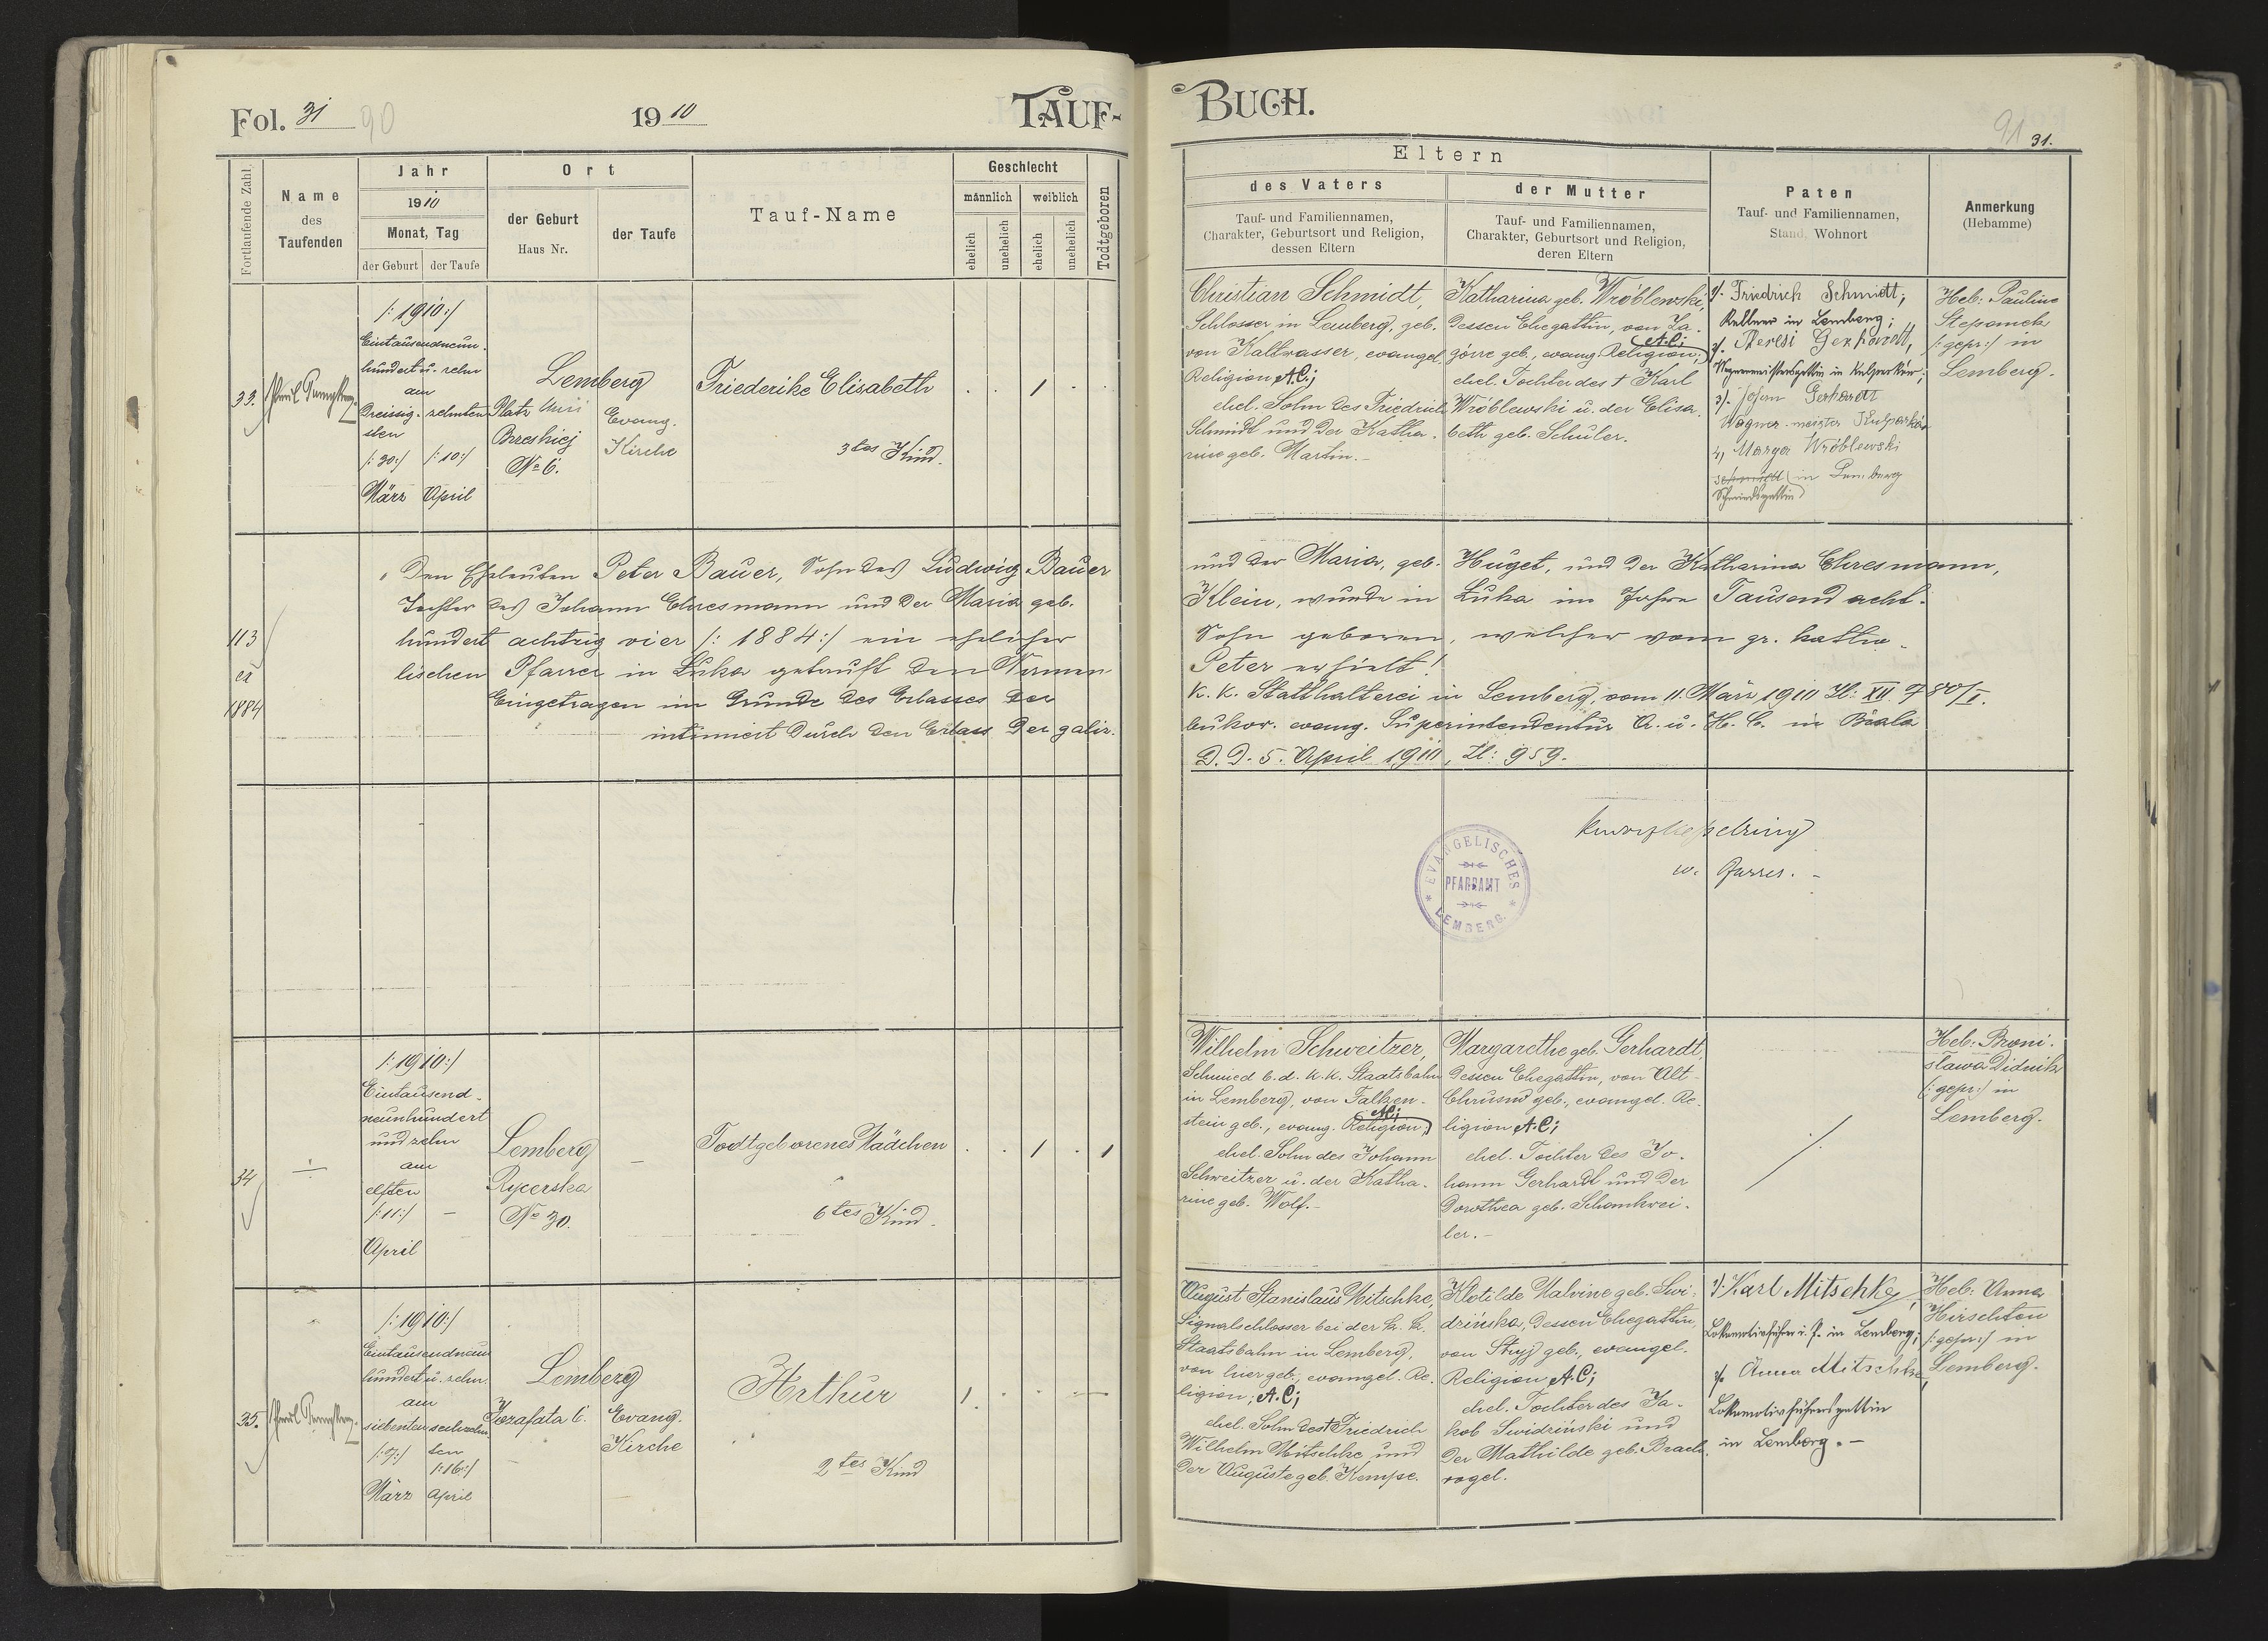 Fol. 31 90
19 10
TAUF-
BUCH.
91 31.
Fortlaufende Zahl.
Name
des
Taufenden
Jahr
1910
Monat, Tag
der Geburt
der Taufe
Ort
der Geburt
Haus Nr.
der Taufe
Tauf-Name
Geschlecht
männlich
weiblich
ehelich
unehelich
ehelich
unehelich
Todtgeboren
Eltern
des Vaters
Tauf- und Familiennamen,
Charakter, Geburtsort und Religion,
dessen Eltern
der Mutter
Tauf- und Familiennamen,
Charakter, Geburtsort und Religion,
deren Eltern
Paten
Tauf- und Familiennamen,
Stand, Wohnort
Anmerkung
(Hebamme)
33.
/:1910:/
Eintausendneun-
hundert u. zehn
am
Dreissig-
sten
/:30:/
März
zehnten
/:10:/
April
Lemberg
Platz
Breskiej
No 6.
Evang.
Kirche
Friederike Elisabeth
3tes Kind.
1
Christian Schmidt,
Schlosser in Lemberg, geb.
von Kaltwasser, evangel.
Religion A.C;
ehel. Sohn des Friedrich
Schmidt und der Katha-
rine geb. Martin.-
Katharina geb. Wróblewski,
dessen Ehegattin, von Za-
górze geb., evang. Religion; A.C;
ehel. Tochter des † Karl
Wróblewski u. der Elisa-
beth geb. Schuler.
1/. Friedrich Schmidt;
Kellner in Lemberg;
2/. Theresi Gerhardt,
Wagnermeistersgattin in Kulparkow;
3/. Johann Gerhardt
Wagner-meister Kulparków
4, Marya Wróblewski
Schmidt in Lemberg
Schmiedsgattin
Heb: Pauline
Stepanek
/:gepr:/ in
Lemberg.
113
ex
1884
Den Eheleuten Peter Bauer, Sohn des Ludwig Bauer und der Maria, geb. Huget, und der Katharina Ehresmann,
Tochter des Johann Ehresmann und der Maria geb. Klein, wurde in Łuka im Jahre Tausend acht-
hundert achtzig vier /:1884:/ ein ehelicher Sohn geboren, welcher vom gr. katho-
lischen Pfarrer in Łuka getauft den Namen Peter erhielt!
Eingetragen im Grunde des Erlasses der k. k. Statthalterei in Lemberg, vom 11. März 1910 Zl: XII
intimiert durch den Erlass der galiz. bukow. evang. Superintendentur A. u. H. C. in Biala
D. D. 5. April 1910, Zl: 959.
w. Pfarrer. -
EVANGELISCHES
PFARRAMT
LEMBERG.
34
/:1910:/
Eintausend-
neunhundert
und zehn
am
elften
/:11:/
April
Lemberg
Rycerska
No 30.
Todtgeborenes Mädchen
6tes Kind.
1
1
Wilhelm Schweitzer,
Schmied b. d. k. k. Staatsbahn
in Lemberg, von Falken-
stein geb., evang. Religion; A.C;
ehel. Sohn des Johann
Schweitzer u. der Katha-
rine geb. Wolf.-
Margarethe geb. Gerhardt,
dessen Ehegattin, von Alt-
Chrusno geb., evangel. Re-
ligion A.C;
ehel. Tochter des Jo-
hann Gerhardt und der
Dorothea geb. Schankwei-
ler.-
Heb: Broni-
sława Didnik
(:gepr:) in
Lemberg.
35.
/:1910:/
Eintausendneun
hundert u. zehn
am
siebenten
/:7:/
März
sechzehn-
ten
/:16:/
April
Lemberg
Jozafata 6.
Evang.
Kirche
Arthur
2tes Kind
1.
August Stanislaus Mitschke,
Signalschlosser bei der k. k.
Staatsbahn in Lemberg,
von hier geb., evangel. Re-
ligion; A.C;
ehel. Sohn des † Friedrich
Wilhelm Mitschke und
der Auguste geb. Kempe.
Klotilde Malvine geb. Swi-
drińska, dessen Ehegattin,
von Stryj geb., evangel.
Religion A.C;
ehel. Tochter des Ja-
kob Swidriński und
der Mathilde geb. Brach-
vogel.
1/. Karl Mitschke,
Lokomotivführer i. P. in Lemberg;
2/. Anna Mitschke,
Lokomotivführersgattin
in Lemberg.-
Heb: Anna
Hirschton
/:gepr:/ in
Lemberg.